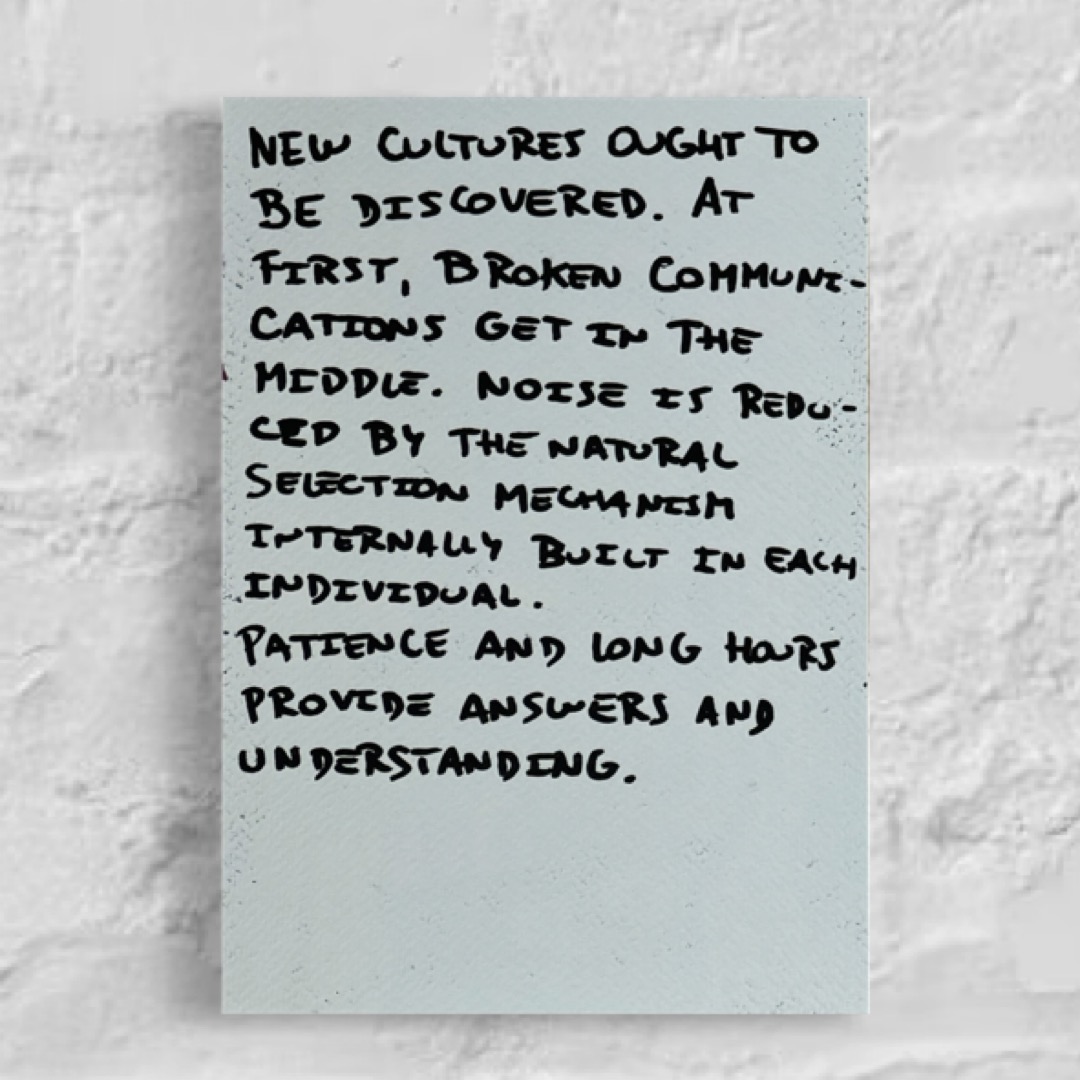 NEW CULTURES OUGHT TO
BE DISCOVERED. AT
FIRST, BROKEN COMMUNI-
CATIONS GET IN THE
MIDDLE. NOISE IS REDU-
CED BY THE NATURAL
SELECTION MECHANISM
INTERNALLY BUILT IN EACH
INDIVIDUAL.
PATIENCE AND LONG HOURS
PROVIDE ANSWERS AND
UNDERSTANDING.